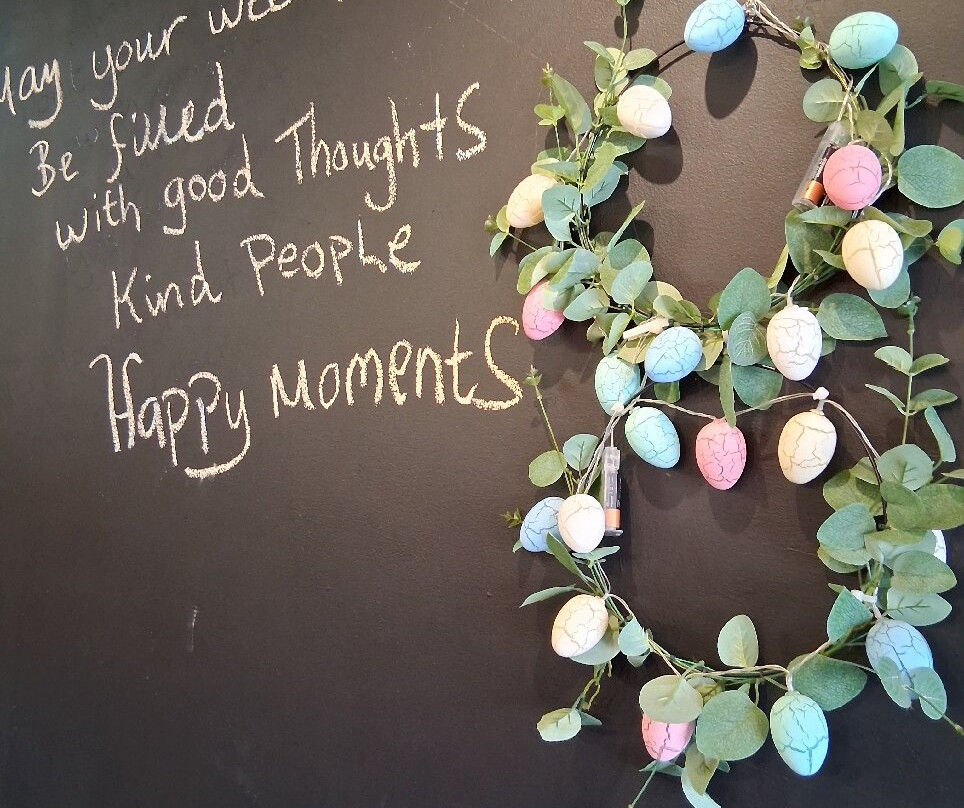 May your
Be filled
with good Thoughts
Kind People
Happy Moments